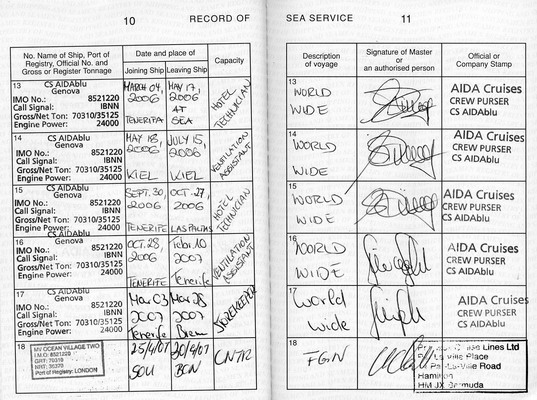 10 RECORD OF
SEA SERVICE 11
No. Name of Ship, Port of
Registry, Official No. and
Gross or Register Tonnage
Date and place of
Joining Ship Leaving Ship
Capacity
Description
of voyage
Signature of Master
or
an authorised person
Official or
Company Stamp
13 CS AIDAblu
Genova
IMO No.: 8521220
Call Signal: IBNN
Gross/Net Ton: 70310/35125
Engine Power: 24000
MARCH 04,
2006
TENERIFA
MAY 17,
2006
AT
SEA
HOTEL
TECHNICIAN
13
WORLD
WIDE
AIDA Cruises
CREW PURSER
CS AIDAblu
14 CS AIDAblu
Genova
IMO No.: 8521220
Call Signal: IBNN
Gross/Net Ton: 70310/35125
Engine Power: 24000
MAY 18,
2006,
KIEL
JULY 15,
2006,
KIEL
VENTILATION
ASSISTANT
14
WORLD
WIDE
AIDA Cruises
CREW PURSER
CS AIDAblu
15 CS AIDAblu
Genova
IMO No.: 8521220
Call Signal: IBNN
Gross/Net Ton: 70310/35125
Engine Power: 24000
SEPT. 30,
2006
TENERIFE
OCT. 27,
2006
LAS PALMAS
HOTEL
TECHNICIAN
15
WORLD
WIDE
AIDA Cruises
CREW PURSER
CS AIDAblu
16 CS AIDAblu
Genova
IMO No.: 8521220
Call Signal: IBNN
Gross/Net Ton: 70310/35125
Engine Power: 24000
OCT. 28,
2006
TENERIFE
Febr. 10
2007
Tenerife
VENTILATION
ASSISTANT
16
WORLD
WIDE
AIDA Cruises
CREW PURSER
CS AIDAblu
17 CS AIDAblu
Genova
IMO No.: 8521220
Call Signal: IBNN
Gross/Net Ton: 70310/35125
Engine Power: 24000
Mar 03
2007
Tenerife
Mar 28
2007
STOREKEEPER
17
World
Wide
AIDA Cruises
CREW PURSER
CS AIDAblu
18
MV OCEAN VILLAGE TWO
I.M.O: 8521220
GRT: 70310
NRT: 36370
Port of Registry: LONDON
25/4/07
SOU
30/9/07
BCN
CNTR
18
FGN
Cruise Lines Ltd
La-Ville Place
Par-La-Ville Road
Hamilton
HM JX Bermuda